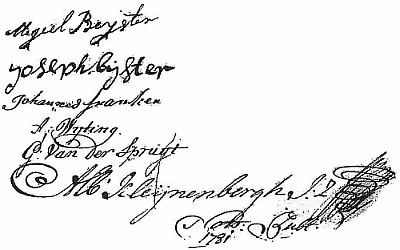 Megiel Beyster
Joseph bijster
Johannes franken
A: Wijting.
G. Van der Spruijt
Alb: Kleijnenbergh
Nots: Publ:
1781